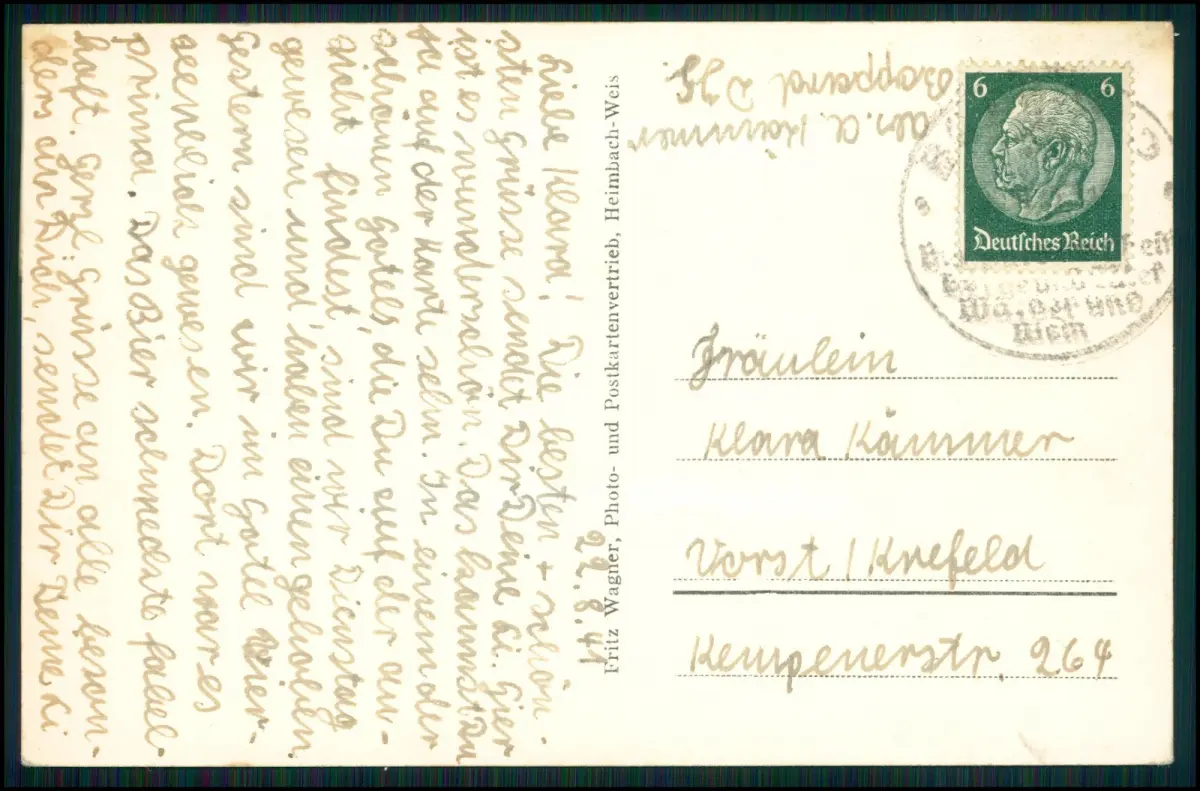 22.8.41
Liebe Klara! Die besten + schön-
sten Grüsse sendet Dir Deine Li. Hier
ist es wunderschön. Das kannst Du
ja auf der Karte sehn. In einem der
schönen Hotels, die Du auf der An-
sicht findest, sind wir Dienstag
gewesen und haben einen gehoben
Gestern sind wir im Hotel Vier-
seenblick gewesen. Dort war es
prima. Das Bier schmeckte fabel-
haft. Herzl. Grüsse an alle beson-
ders an Dich, sendet Dir Deine Li
Fritz Wagner, Photo- und Postkartenvertrieb, Heimbach-Weis
Abs. A. Kämmer
Boppard
6 6
Deutsches Reich
Wälder und
Wein
Fräulein
Klara Kämmer
Vorst / Krefeld
Kempenerstr. 264